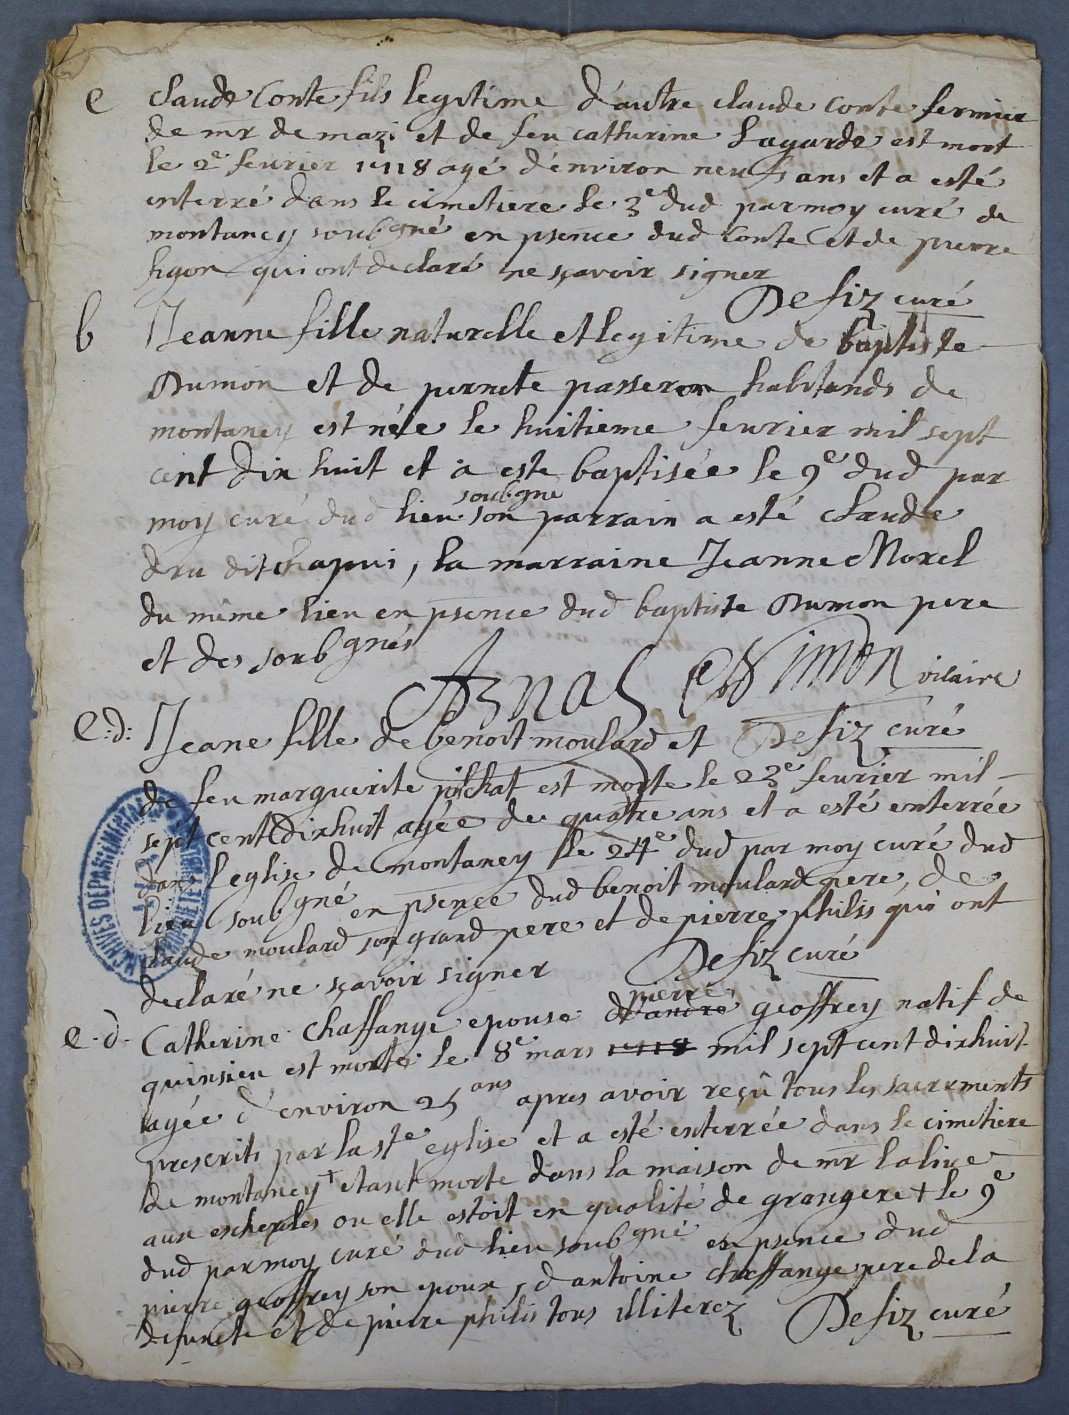 e claude Conte fils legitime d'autre claude conte fermier
de mr de mazi et de feu catherine Lagarde est mort
le 2e feurier 1718 agé d'environ neufs ans et a esté
enterré dans le cimetiere le 3e dud par moy curé de
montaney soubgné en psence dud Conte et de pierre
figon qui ont declaré ne sçavoir signer
Defiz curé
b Jeanne fille naturelle et legitime de baptiste
Dumon et de pernete passeron habitands de
montaney est née le huitieme feurier mil sept
cent dix huit et a este baptisée le 9e dud par
soubgné
moy curé dud lieu son parrain a esté claude
dru dit chapui, la marraine Jeanne Morel
du même lieu en psence dud baptiste Dumon pere
et des soubgnés
Simon vicaire
e:d: Jeane fille de benoit moulard et Defiz curé
de feu marguerite pilchat est morte le 23e feurier mil
sept cent dixhuit agée de quatre ans et a esté enterrée
dans l'eglise de montaney le 24e dud par moy curé dud
lieu soubgné en psence dud benoit moulard pere, de
claude moulard son grand pere et de pierre philis qui ont
declaré ne sçavoir signer Defiz curé
pierre
e.d. Catherine chaffange epouse d'andré geoffrey natif de
quinsieu est morte le 8e mars 1718 mil sept cent dixhuit
agée d'environ 25 ans apres avoir reçû tous les sacrements
prescrits par la ste eglise et a esté enterrée dans le cimetiere
de montaney + etant morte dans la maison de mr lalive
aux eschelles ou elle estoit en qualité de grangere + le 9e
dud par moy curé dud lieu soubgné en psence dud
pierre geoffrey son epoux, d'antoine chaffange pere de la
defuncte et de pierre philis tous illiterez Defiz curé
ARCHIVES DEPARTEMENTALES